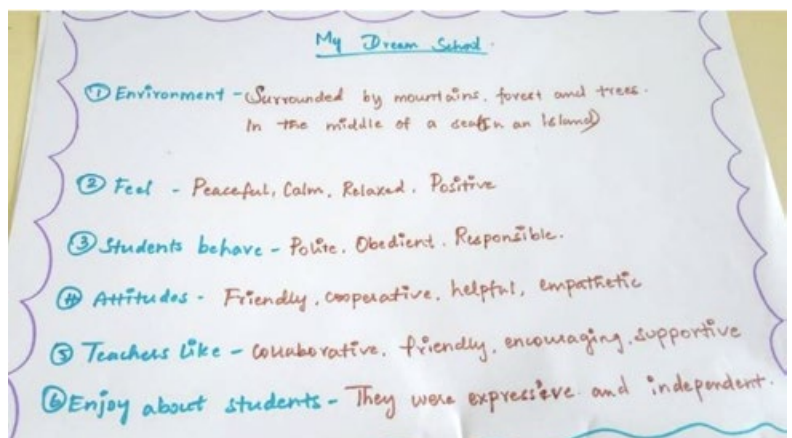 My Dream School.
① Environment - Surrounded by mountains, forest and trees.
In the middle of a sea(In an Island)
② Feel - Peaceful, Calm, Relaxed, Positive
③ Students behave - Polite, Obedient, Responsible.
④ Attitudes - Friendly, cooperative, helpful, empathetic
⑤ Teachers like - collaborative, friendly, encouraging, supportive
⑥ Enjoy about students - They were expressive and independent.